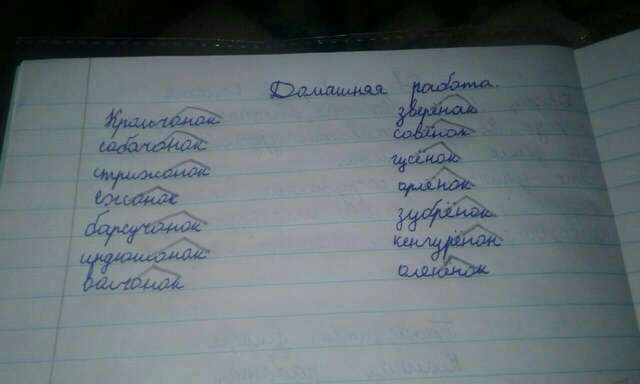 Домашняя работа.
Крольчонок
собачонок
стрижонок
ежонок
барсучонок
индюшонок
волчонок
зверёнок
совёнок
гусёнок
орлёнок
зубрёнок
кенгурёнок
оленёнок